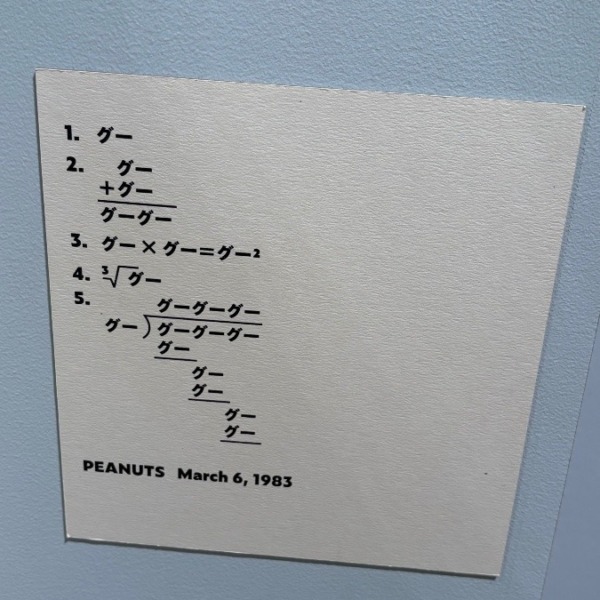 1. グー
2. グー
+グー
グーグー
3. グー×グー=グー²
4. ³√グー
5.
グーグーグー
グー)グーグーグー
グー
グー
グー
グー
グー
PEANUTS March 6, 1983